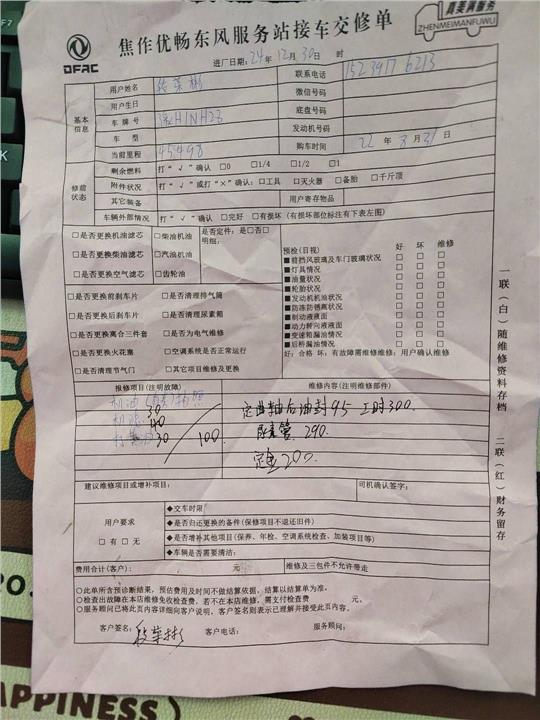 焦作优畅东风服务站接车交修单
真美满服务
ZHENMEIMANFUWU
DFAC
进厂日期: 24年 12月 30日 时
用户姓名 段荣彬
联系电话 15239176213
用户生日
微信号码
基本信息
车牌号 豫H1NH28
底盘号
车型
发动机号码
当前里程 45498
购车时间 22年 3月 31日
修前状态
剩余燃料 打“√”确认 □0 □1/4 □1/2 □1
附件状况 打“√”或打“×”确认: □工具 □灭火器 □备胎 □千斤顶
其它装备
用户寄存物品
车辆外部情况 打“√”确认 □完好 □有损坏 (有损坏部位标注有下表左图)
□是否更换机油滤芯 □柴油机油 是否定件: 是□否□
□是否更换柴油滤芯 □汽油机油 明细:
□是否更换空气滤芯 □齿轮油
□是否更换前刹车片 □是否清理排气筒
□是否更换后刹车片 □是否清理尿素箱
□是否更换离合三件套 □是否为电气维修
□是否更换火花塞 □空调系统是否正常运行
□是否清理节气门 □其它项目维修及更换
预检(目视) 好 坏 维修
■前挡风玻璃及车门玻璃状况 □ □ □
■灯具情况 □ □ □
■油量状况 □ □ □
■轮胎状况 □ □ □
■发动机机油状况 □ □ □
■防冻防锈离状况 □ □ □
■制动液液面 □ □ □
■动力转向液液面 □ □ □
■变速箱漏油情况 □ □ □
■后桥漏油情况 □ □ □
好: 合格 坏: 有故障需维修维修: 用户确认维修
报修项目(注明故障)
维修内容(注明维修部件)
机油
30
机滤
40
30
100
定曲轴后油封95 工时300.
尿素管. 290.
定金200.
建议维修项目或增补项目:
司机确认签字:
用户要求
□有 □无
◆交车时限
◆是否归还更换的备件(保修项目不退还旧件)
◆是否增补其他项目(保养、年检、空调系统检查、加装项目等)
◆车辆是否需要清洁:
费用合计(客户): 元。
维修及三包件不允许带走
○此单所含预诊断结果，预估费用及时间不做结算依据，结算以结算单为准。
○检查出故障在本店维修免收检查费，若不在本店维修，需支付检查费 元。
○服务顾问已将此页内容详细向客户说明，客户签名则表示已理解并接受此页内容。
客户签名: 段荣彬 客户电话: 服务顾问:
一联(白)随维修资料存档 二联(红)财务留存
F7
K
APPINESS